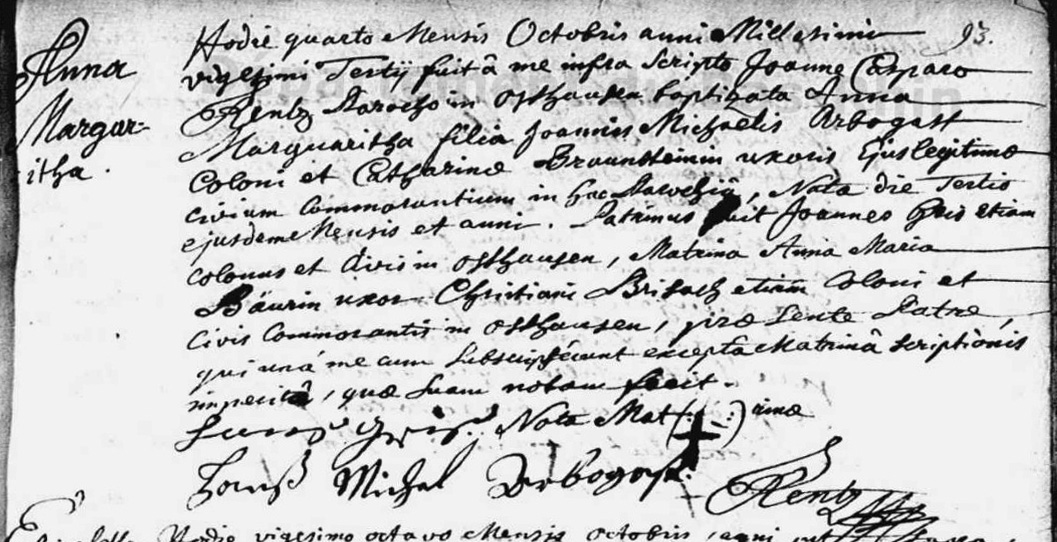 93.
Anna
Margar-
itha.
Hodie quarto Mensis Octobris anni Millesimi
vigesimi Tertij fuit â me infra Scripto Joanne Casparo
Rentz Parocho in Osthausen baptizata Anna
Marguaritha filia Joannis Michaelis Arbogast
Coloni et Catharinæ Braunsteinin uxoris Ejus legitimæ
civium commorantium in hac Parochiâ, Nata die Tertio
ejusdem Mensis et anni. Patrinus fuit Joannes Gris etiam
colonus et Civis in Osthausen, Matrina Anna Maria
Bäurin uxor Christiani Brisach etiam Coloni et
Civis Commorantis in Osthausen, præsente Patre,
qui unâ me cum Subscripserunt exceptâ Matrinâ Scriptionis
imperitâ, quæ Suam notam fecit.
Hans Gris. Nota Mat(+)rinæ
Hanß Michel Arbogast
Rentz
Hodie vigesimo octavo Mensis Octobris, anni